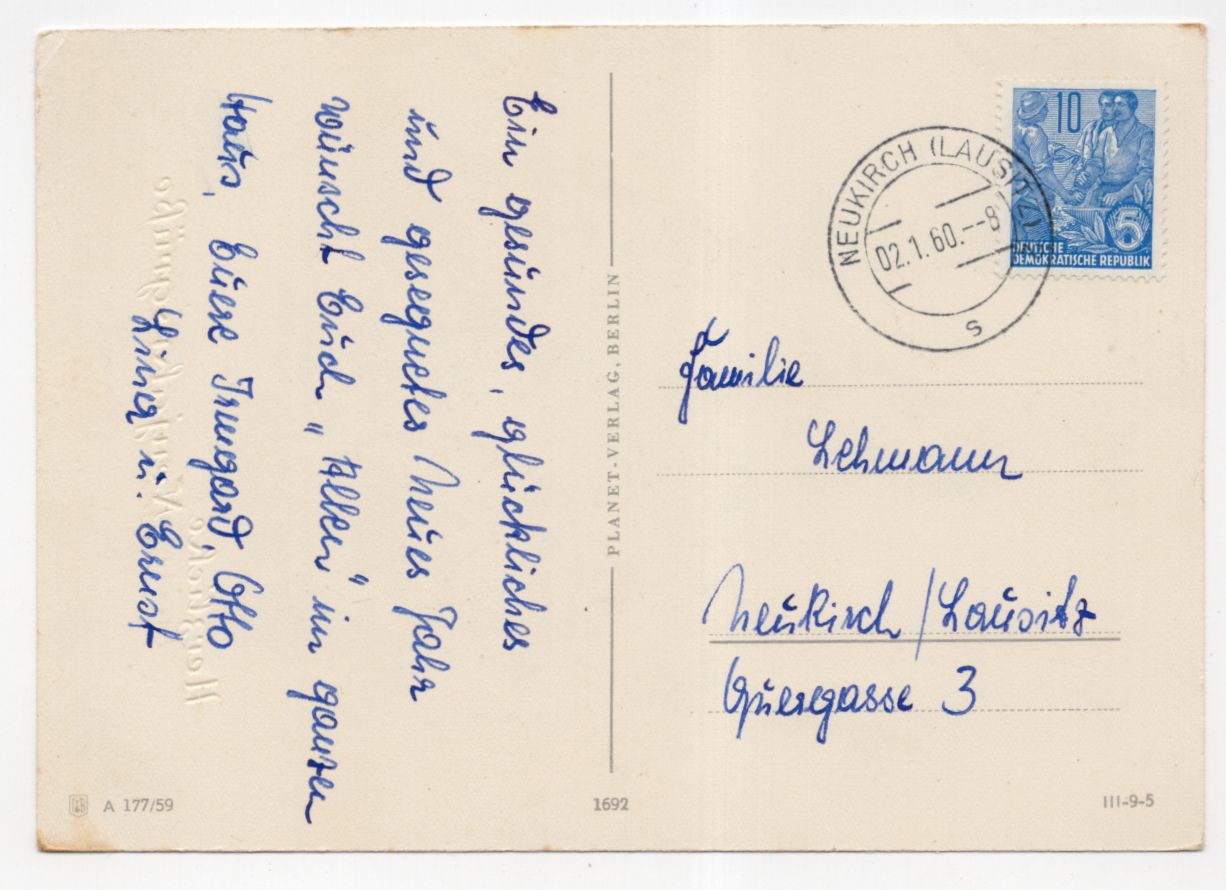 Ein gesundes, glückliches
und gesegnetes Neues Jahr
wünscht Euch „Allen" im ganzen
Haus, Euere Irmgard, Otto
Lina u. Ernst
PLANET-VERLAG, BERLIN
10
5
DEUTSCHE
DEMOKRATISCHE REPUBLIK
NEUKIRCH (LAUSITZ)
02.1.60.--8
s
Familie
Lehmann
Neukirch/Lausitz
Quergasse 3
A 177/59
1692
III-9-5